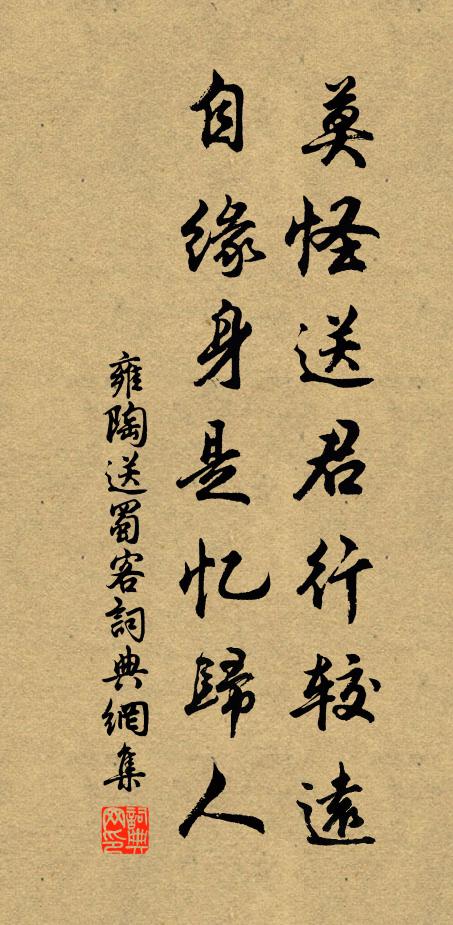 莫怪送君行较遠
自缘身是忆歸人
雍陶送蜀客詞典網集
詞典网印